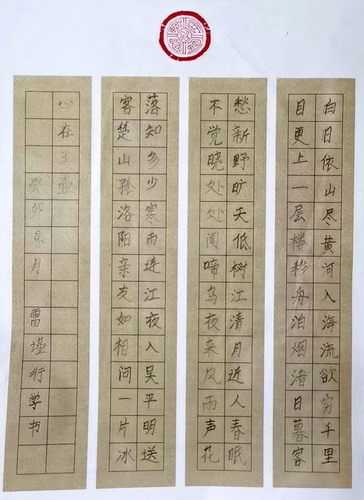 白日依山尽黄河入海流欲穷千里
目更上一层楼移舟泊烟渚日暮客
愁新野旷天低树江清月近人春眠
不觉晓处处闻啼鸟夜来风雨声花
落知多少寒雨连江夜入吴平明送
客楚山孤洛阳亲友如相问一片冰
心在玉壶
癸卯冬月雷瑾行学书